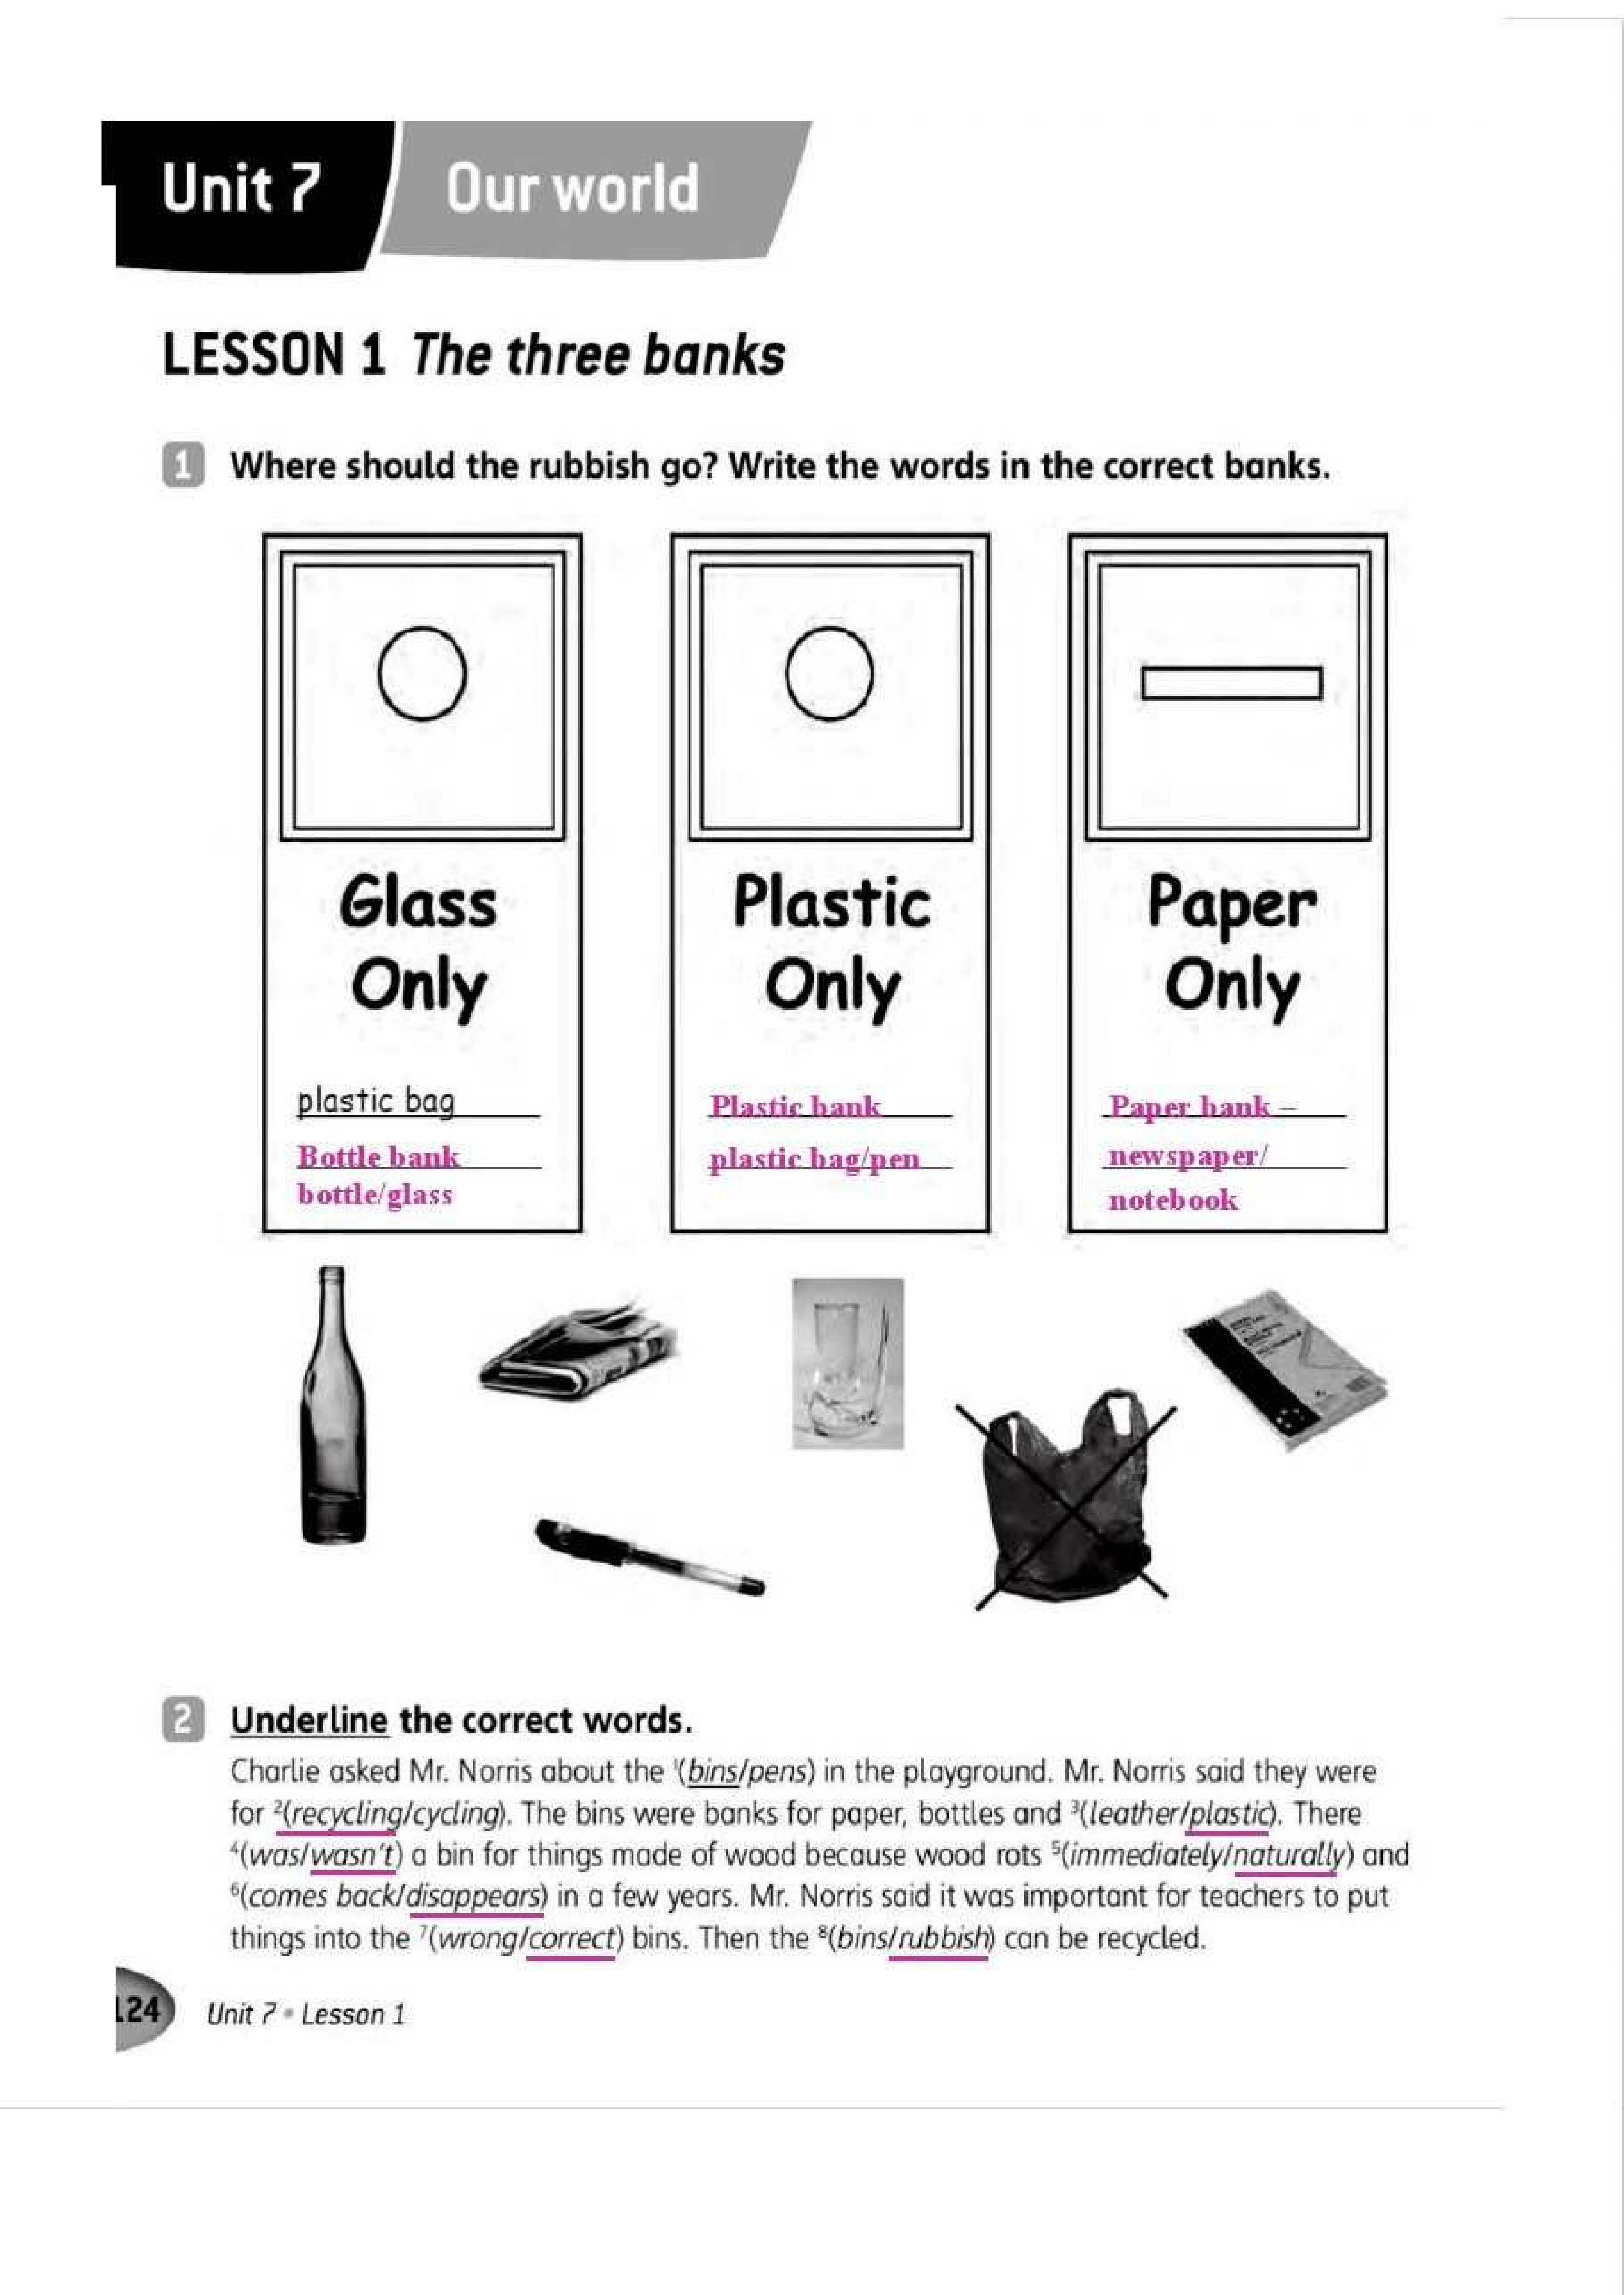 Unit 7
Our world
LESSON 1 The three banks
1 Where should the rubbish go? Write the words in the correct banks.
Glass
Only
plastic bag
Bottle bank
bottle/glass
Plastic
Only
Plastic bank
plastic bag/pen
Paper
Only
Paper bank –
newspaper/
notebook
2 Underline the correct words.
Charlie asked Mr. Norris about the ¹(bins/pens) in the playground. Mr. Norris said they were
for ²(recycling/cycling). The bins were banks for paper, bottles and ³(leather/plastic). There
⁴(was/wasn't) a bin for things made of wood because wood rots ⁵(immediately/naturally) and
⁶(comes back/disappears) in a few years. Mr. Norris said it was important for teachers to put
things into the ⁷(wrong/correct) bins. Then the ⁸(bins/rubbish) can be recycled.
124 Unit 7 • Lesson 1